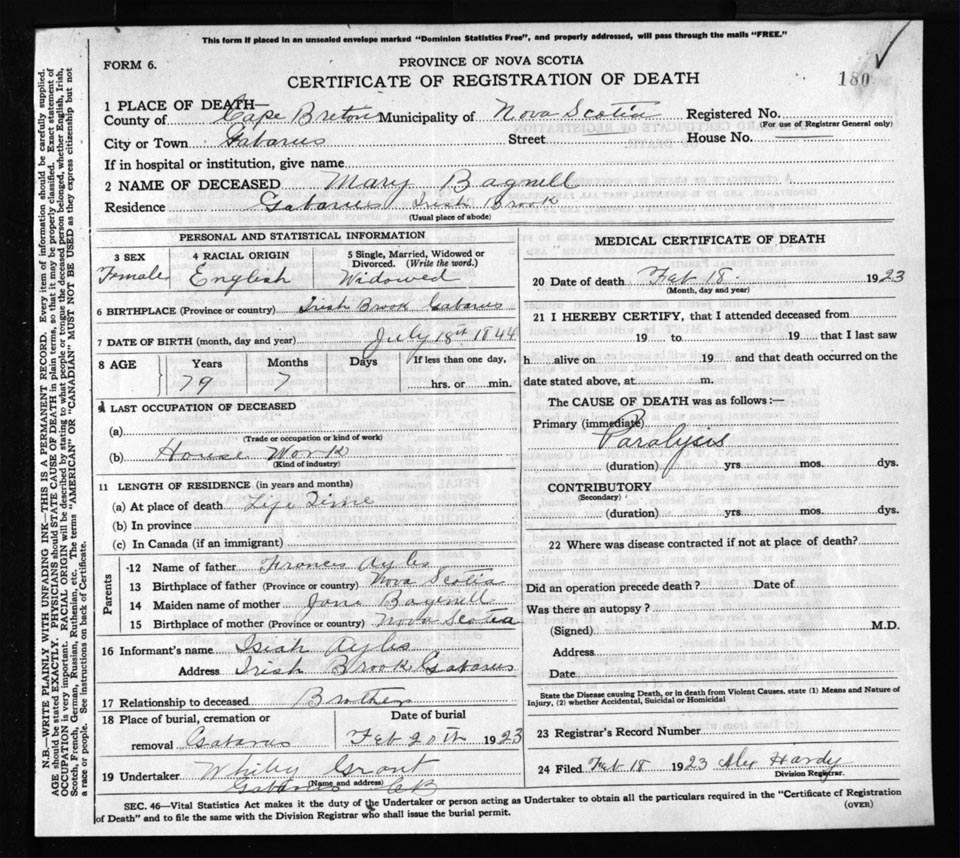 This form if placed in an unsealed envelope marked "Dominion Statistics Free", and properly addressed, will pass through the mails "FREE."
FORM 6.
PROVINCE OF NOVA SCOTIA
CERTIFICATE OF REGISTRATION OF DEATH
180
1 PLACE OF DEATH—
County of Cape Breton Municipality of Nova Scotia Registered No.
(For use of Registrar General only)
City or Town Gabarus Street House No.
If in hospital or institution, give name
2 NAME OF DECEASED Mary Bagnell
Residence Gabarus Irish Brook
(Usual place of abode)
PERSONAL AND STATISTICAL INFORMATION
3 SEX 4 RACIAL ORIGIN 5 Single, Married, Widowed or Divorced. (Write the word.)
Female English Widowed
6 BIRTHPLACE (Province or country) Irish Brook Gabarus
7 DATE OF BIRTH (month, day and year) July 18th 1844
8 AGE Years Months Days If less than one day,
79 7 hrs. or min.
9 LAST OCCUPATION OF DECEASED
(a)
(Trade or occupation or kind of work)
(b) House Work
(Kind of industry)
11 LENGTH OF RESIDENCE (in years and months)
(a) At place of death Life Time
(b) In province
(c) In Canada (if an immigrant)
Parents
12 Name of father Francis Ayles
13 Birthplace of father (Province or country) Nova Scotia
14 Maiden name of mother Jane Bagnell
15 Birthplace of mother (Province or country) Nova Scotia
16 Informant's name Isiah Ayles
Address Irish Brook Gabarus
17 Relationship to deceased Brother
18 Place of burial, cremation or removal Gabarus Date of burial
Feb 20th 1923
19 Undertaker Whiby Grant
(Name and address)
Gabarus CB
MEDICAL CERTIFICATE OF DEATH
20 Date of death Feb 18. 1923
(Month, day and year)
21 I HEREBY CERTIFY, that I attended deceased from
19 to 19 that I last saw
h alive on 19 and that death occurred on the
date stated above, at m.
The CAUSE OF DEATH was as follows:—
Primary (immediate)
Paralysis
(duration) yrs. mos. dys.
CONTRIBUTORY
(Secondary)
(duration) yrs. mos. dys.
22 Where was disease contracted if not at place of death?
Did an operation precede death? Date of
Was there an autopsy?
(Signed) M.D.
Address
Date
State the Disease causing Death, or in death from Violent Causes, state (1) Means and Nature of
Injury, (2) whether Accidental, Suicidal or Homicidal
23 Registrar's Record Number
24 Filed Feb 18 1923 Alex Hardy
Division Registrar.
SEC. 46—Vital Statistics Act makes it the duty of the Undertaker or person acting as Undertaker to obtain all the particulars required in the "Certificate of Registration
of Death" and to file the same with the Division Registrar who shall issue the burial permit.
(OVER)
N.B.—WRITE PLAINLY WITH UNFADING INK—THIS IS A PERMANENT RECORD. Every item of information should be carefully supplied.
AGE should be stated EXACTLY. PHYSICIANS should STATE CAUSE OF DEATH in plain terms, so that it may be properly classified. Exact statement of
OCCUPATION is very important. RACIAL ORIGIN will be described by stating to what people or tongue the deceased person belonged, whether English, Irish,
Scotch, French, German, Russian, Ruthenian, etc. The terms "AMERICAN" OR "CANADIAN" MUST NOT BE USED as they express citizenship but not
a race or people. See instructions on back of Certificate.